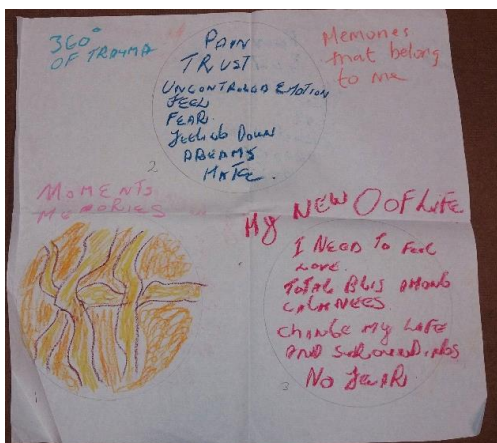 360°
OF TRAUMA
PAIN
TRUST
UNCONTROLLED EMOTION
FEEL
FEAR
Feeling Down
DREAMS
HATE
2
Memories
that belong
to me
MOMENTS
MEMORIES
My NEW O OF LIFE
I NEED To Feel
LOVE.
TOTAL BLIS AMONG
CALMNEES
CHANGE MY LIFE
AND SUROUNDINGS
No FEAR
3